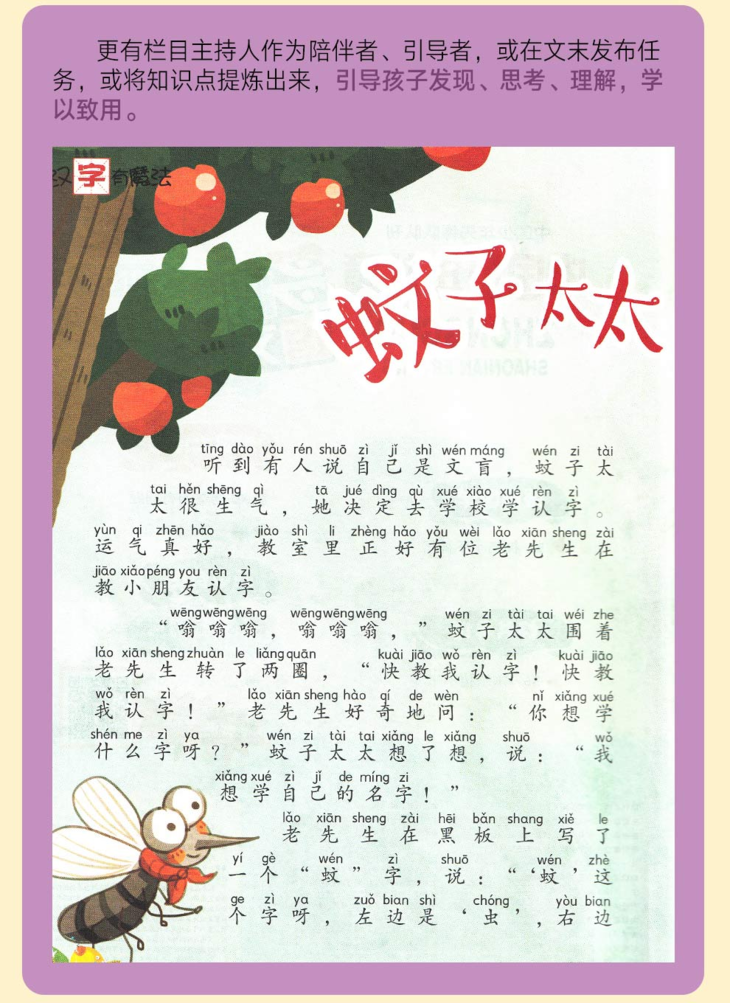 更有栏目主持人作为陪伴者、引导者，或在文末发布任
务，或将知识点提炼出来，引导孩子发现、思考、理解，学
以致用。
汉字有魔法
蚊子太太
tīng dào yǒu rén shuō zì jǐ shì wén máng wén zi tài
听到有人说自己是文盲，蚊子太
tai hěn shēng qì tā jué dìng qù xué xiào xué rèn zì
太很生气，她决定去学校学认字。
yùn qi zhēn hǎo jiào shì li zhèng hǎo yǒu wèi lǎo xiān sheng zài
运气真好，教室里正好有位老先生在
jiāo xiǎo péng you rèn zì
教小朋友认字。
wēng wēng wēng wēng wēng wēng wén zi tài tai wéi zhe
“嗡嗡嗡，嗡嗡嗡，”蚊子太太围着
lǎo xiān sheng zhuàn le liǎng quān kuài jiāo wǒ rèn zì kuài jiāo
老先生转了两圈，“快教我认字！快教
wǒ rèn zì lǎo xiān sheng hào qí de wèn nǐ xiǎng xué
我认字！”老先生好奇地问：“你想学
shén me zì ya wén zi tài tai xiǎng le xiǎng shuō wǒ
什么字呀？”蚊子太太想了想，说：“我
xiǎng xué zì jǐ de míng zi
想学自己的名字！”
lǎo xiān sheng zài hēi bǎn shang xiě le
老先生在黑板上写了
yí gè wén zì shuō wén zhè
一个“蚊”字，说：“‘蚊’这
ge zì ya zuǒ bian shì chóng yòu bian
个字呀，左边是‘虫’，右边